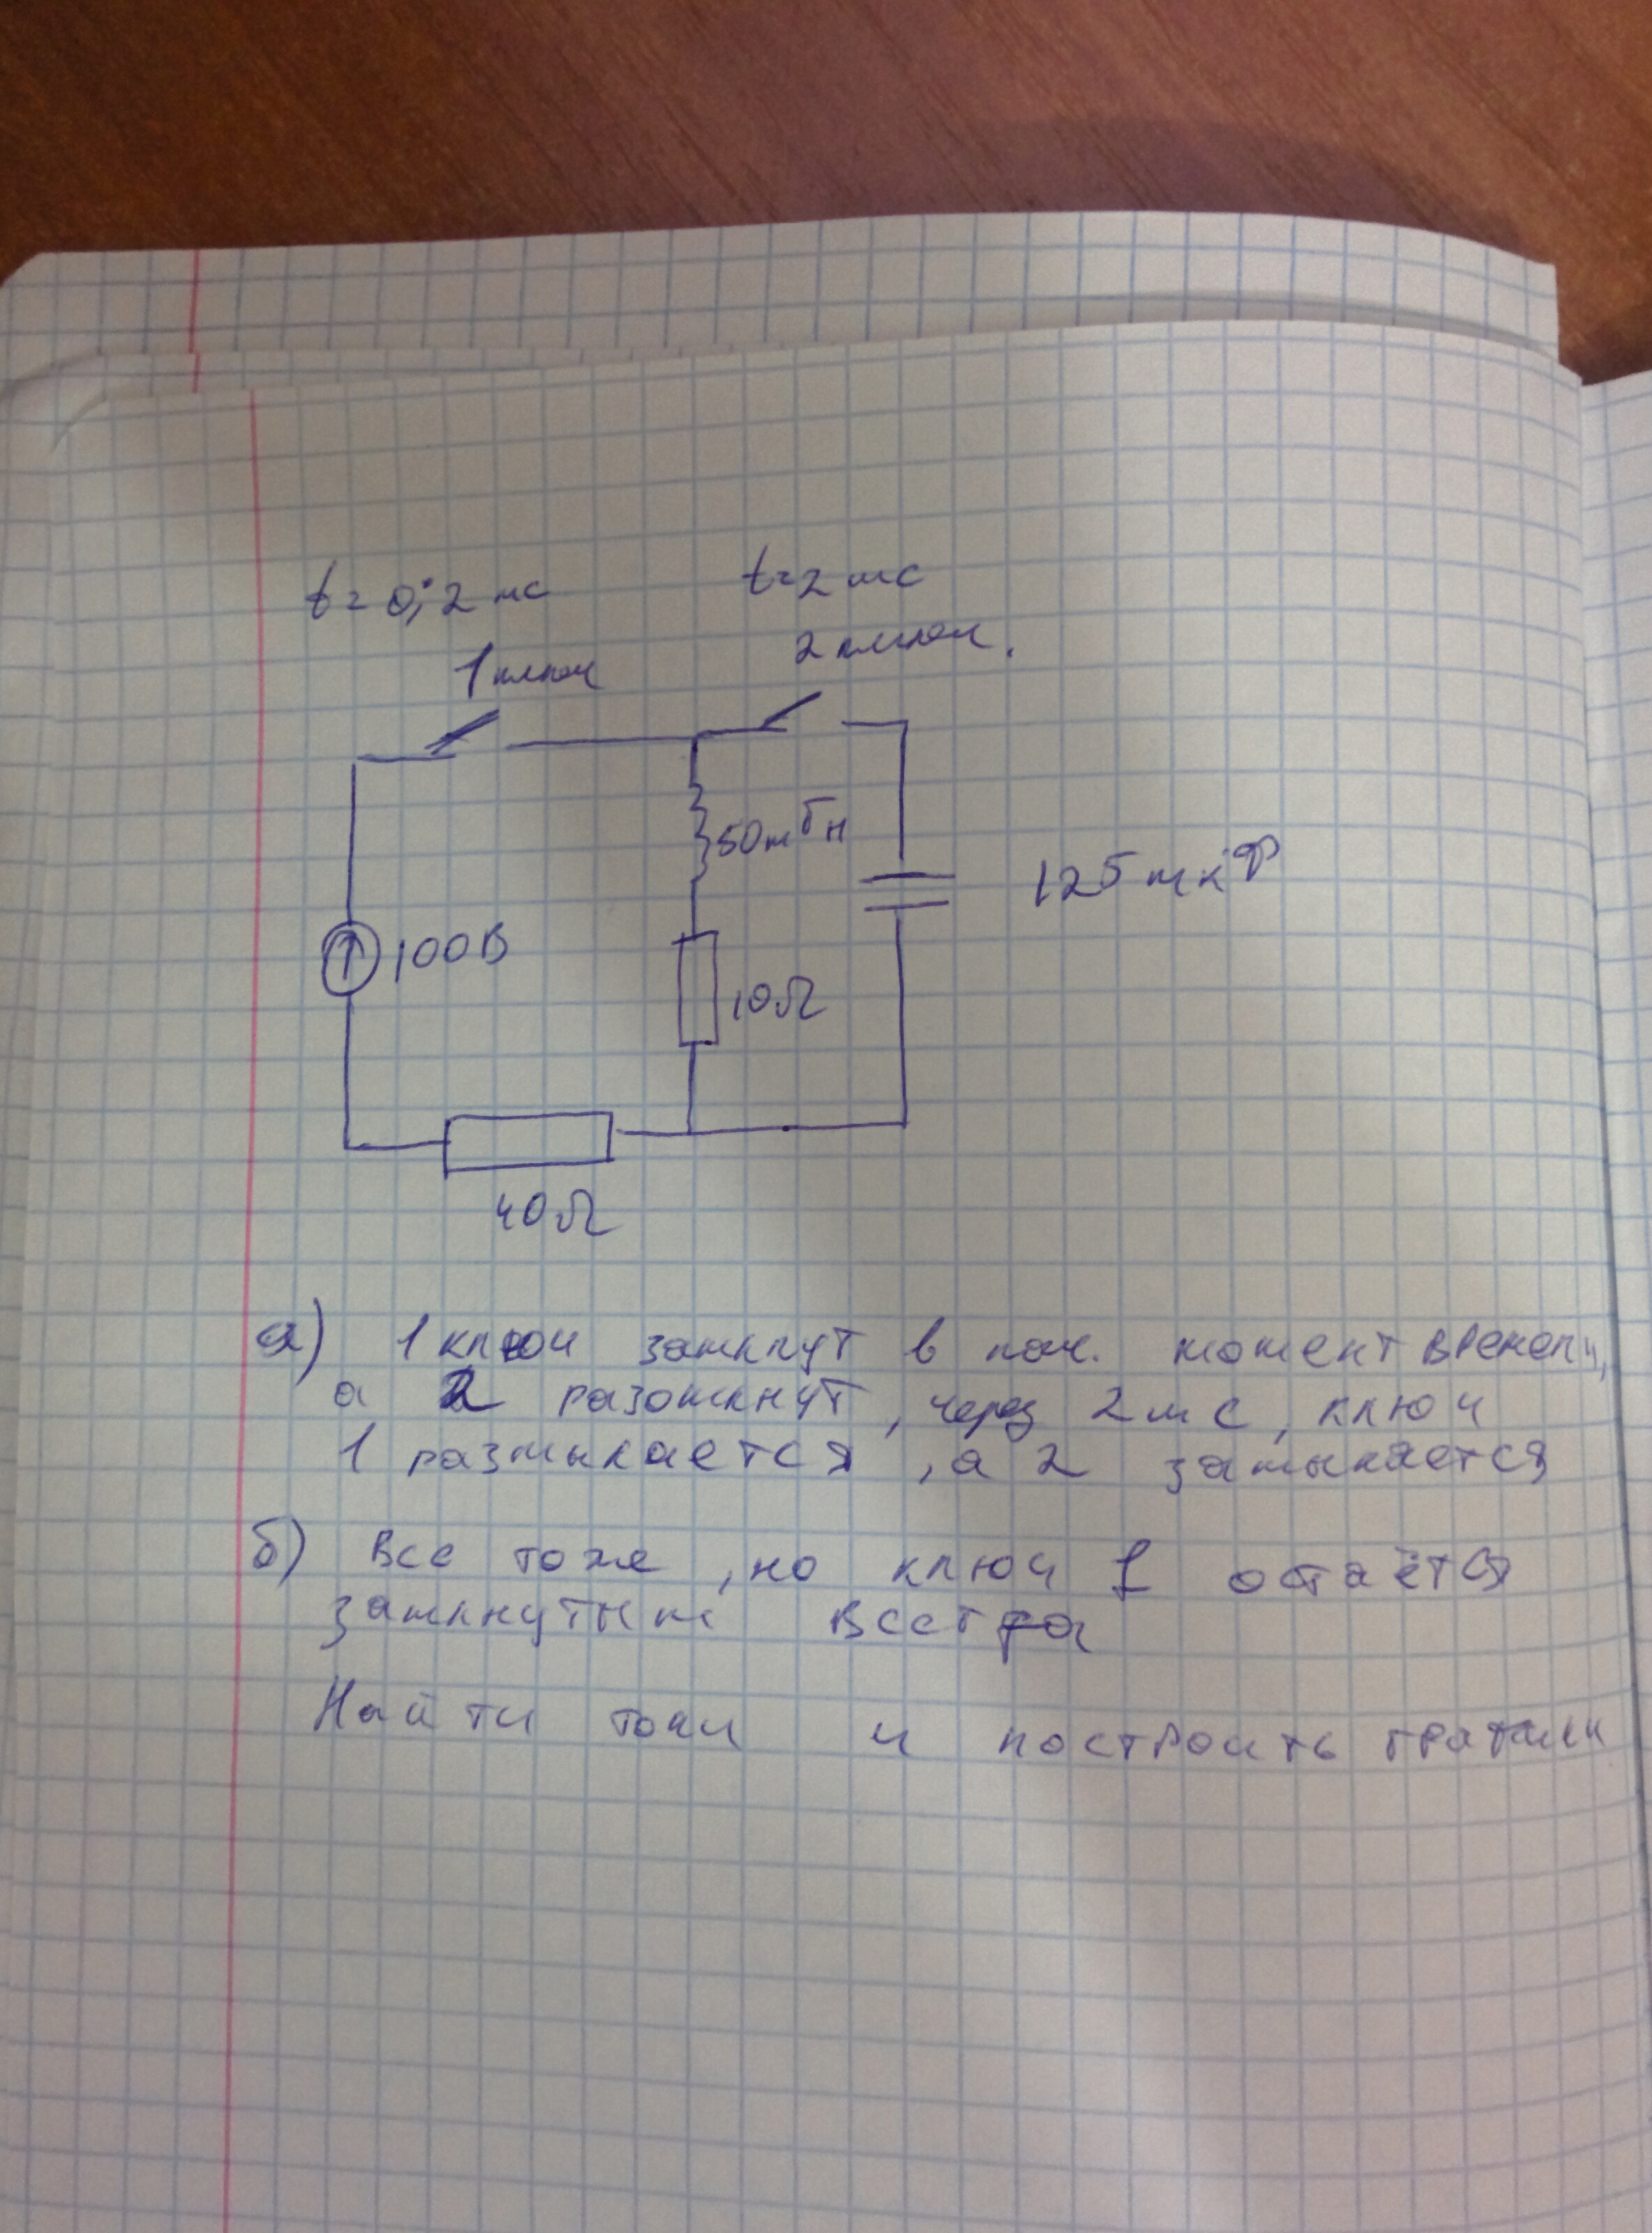 t=0;2мс
t=2мс
1 ключ
2 ключ.
50мГн
125мкФ
100В
10Ω
40Ω
а) 1 ключ замкнут в нач. момент времени,
а 2 разомкнут, через 2мс, ключ
1 размыкается, а 2 замыкается
б) Все тоже, но ключ 1 остаётся
замкнутым всегда
Найти токи и построить графики